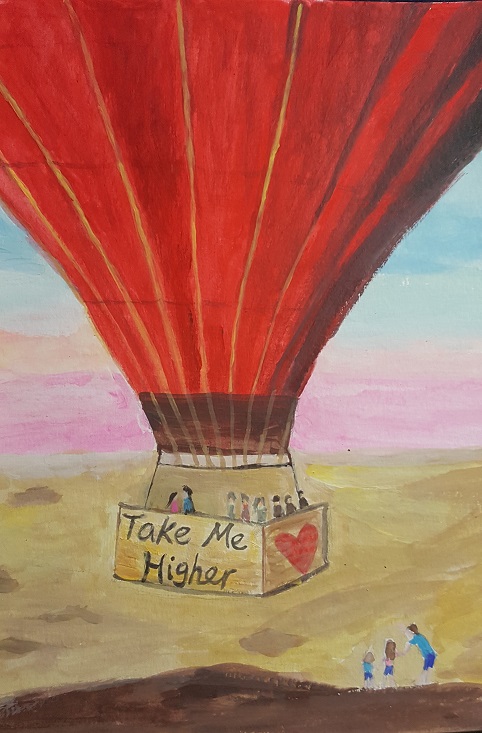 Take Me
Higher